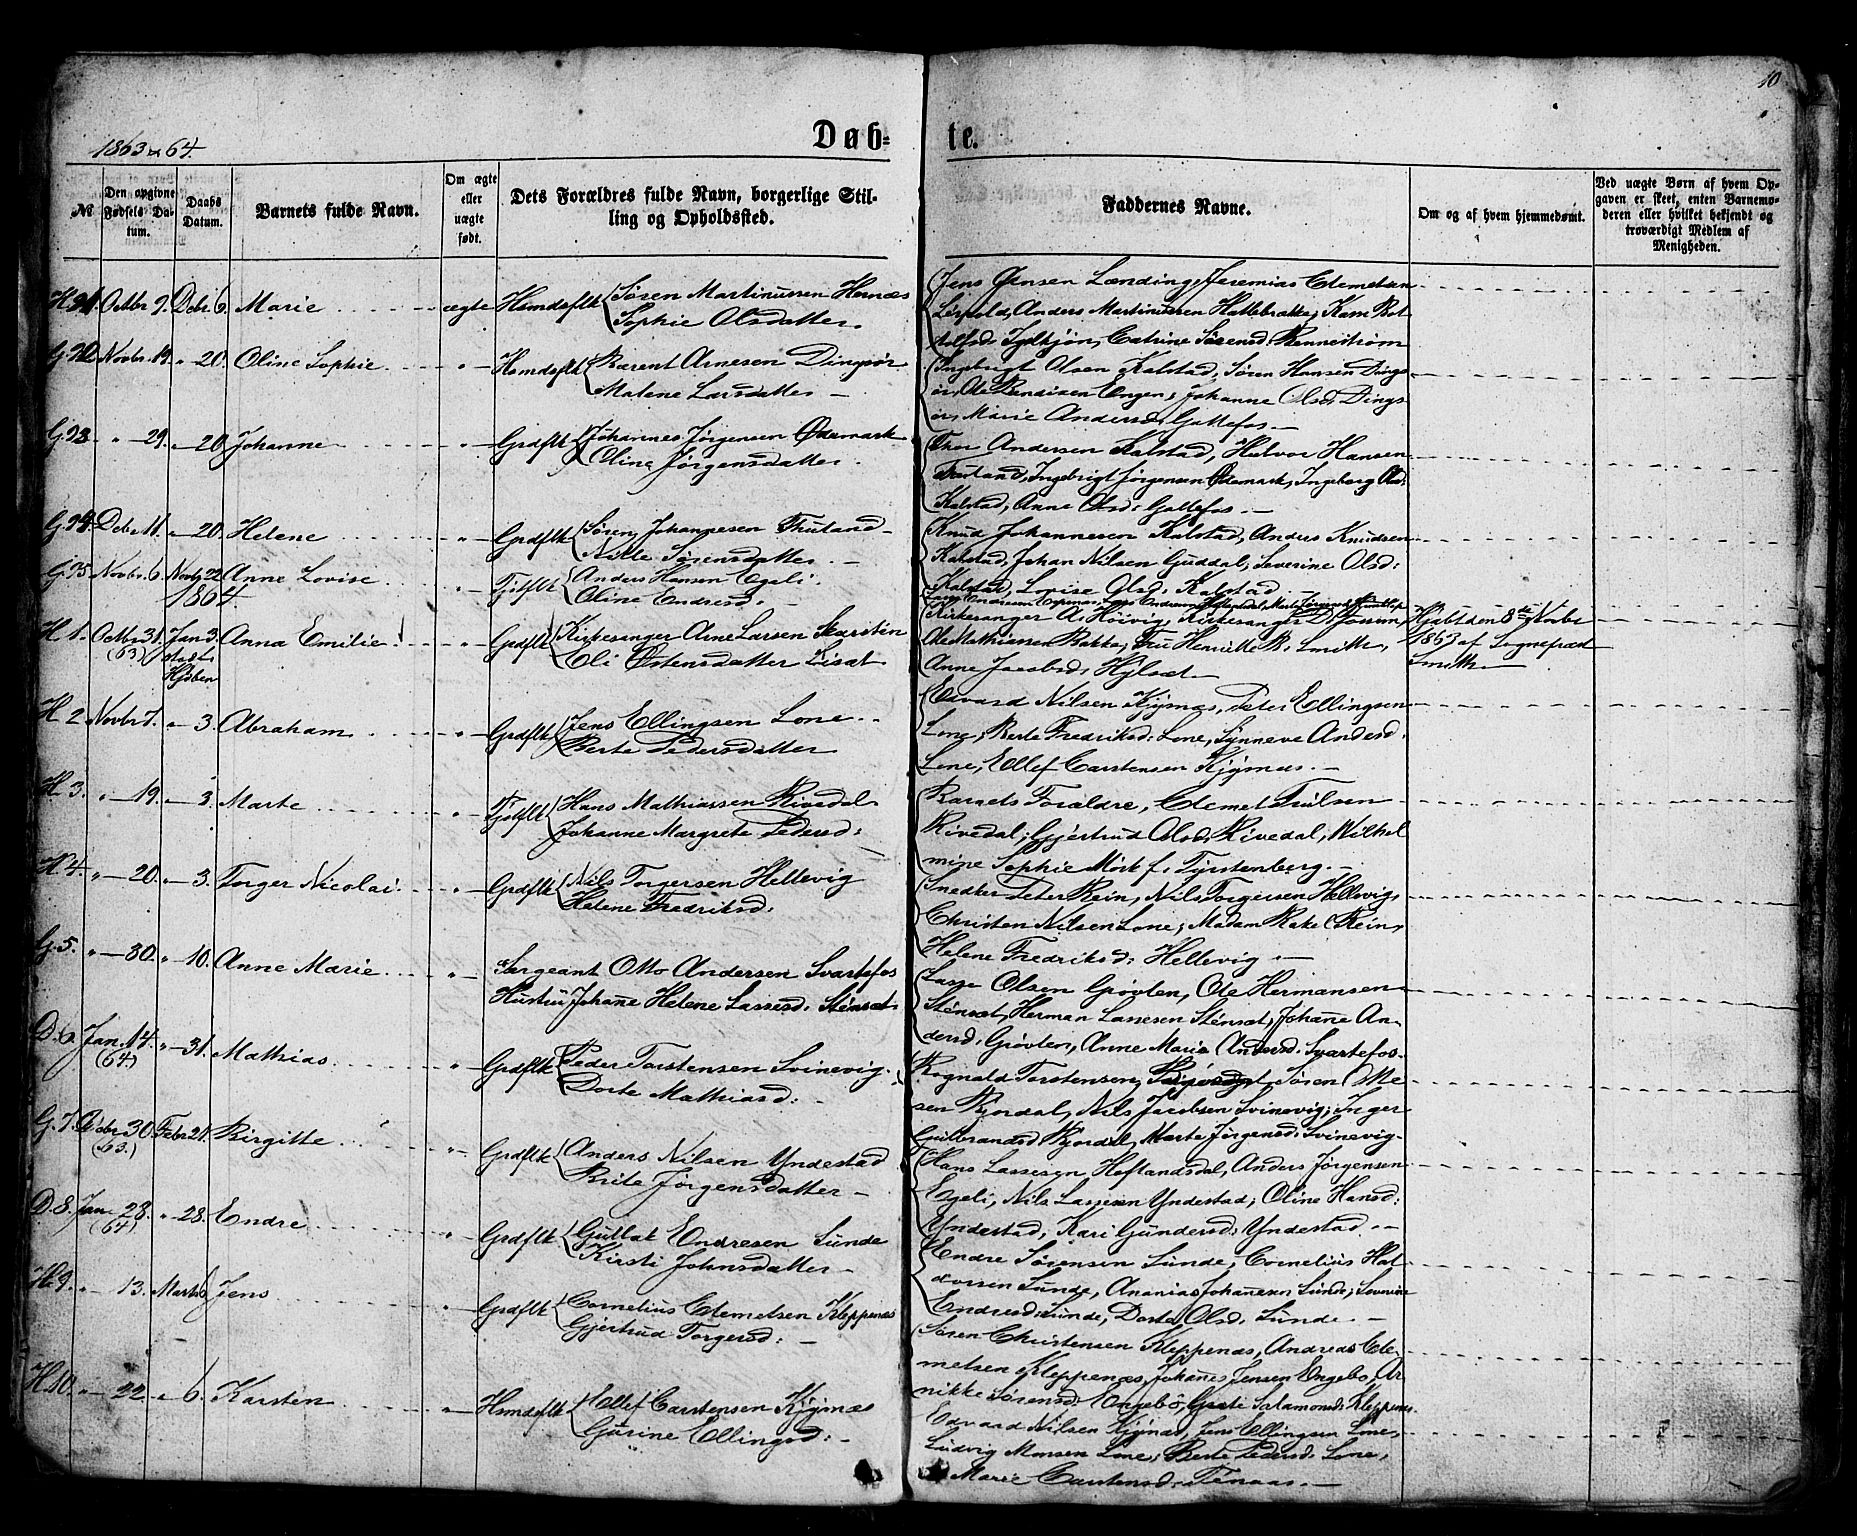 10
1863 & 64.
Døb-
te.
№
Den opgivne Fødsels Datum.
Daabs Datum.
Barnets fulde Navn.
Om ægte eller uægte født.
Dets Forældres fulde Navn, borgerlige Stilling og Opholdssted.
Faddernes Navne.
Om og af hvem hjemmedøbt.
Ved uægte Børn af hvem Opgaven er skeet, enten Barnemoderen eller hvilket bekjendt og troværdigt Medlem af Menigheden.
H. 91. Octbr 9. Debr 6. Marie ægte Hsmdsflk Søren Martinussen Hernæs
Sophie Olsdatter
Jens Jensen Lending, Jeremias Clemetsen
Leirpold, Anders Martinussen Hattebrække, Karn Rot
tolfsd Tydkjøn, Catrine Sørensd. Rennestrøm
G. 92 Novbr. 19. " 20. Oline Sophie " Hsmdsflk Bærent Arnesen Dingsør
Malene Larsdatter -
Ingebrigt Olsen Kalstad, Søren Hansen Dings-
ør, Ole Bendixen Engen, Johanne Olsd. Dings-
ør, Marie Andersd. Gottefos.-
G. 93. " - 29. " - 20. Johanne " Grdflk Johannes Jørgensen Ødemark
Oline Jørgensdatter.
Thor Andersen Kalstad, Halvor Hansen
Trutand, Ingebrigt Jørgensen Ødemark, Ingeborg Olsd:
Kalstad, Anne Olsd: Gottefos.-
G. 94. Debr. 11. " - 20. Helene " Grdflk Søren Johannesen Frutand
Nille Sørensdatter.-
Knud Johannesen Kalstad, Anders Knudsen
Kalstad, Johan Nilsen Guddal, Severine Olsd:
Kalstad, Lovise Olsd. Kalstad
G. 95 Novbr. 6. Novbr 22 Anne Lovise " Tjdflk Anders Hansen Egeli.
Oline Endresd.
1864.
H 1. Octbr 31. (63) Jan. 3. stadf. Hjdøben Anna Emilie " Grdflk Kirkesanger Arne Larsen Skarstén
Eli Østensdatter Lisæt
Kirkesanger A. Høivig, Kirkesanger D. Jossum,
Ole Mathiessen Bakke, Fru Henriette B. Smith,
Anne Jacobsd. Hjlsæt.
Hjdøbt den 8de Novbr
1863 af Sogneprest
Smith
H 2 Novbr 7. " 3. Abraham " Grdflk Jens Ellingsen Lone.
Berte Pedersdatter
Edvard Nilsen Kjynæs, Peter Ellingsen
Lone, Berte Fredriksd: Lone, Synneve Andersd.
Lone, Ellef Carstensen Kjynæs.-
H 3. " - 19. " - 3. Marte " Tjdflk Hans Mathiassen Rivedal
Johanne Margrete Pedersd:
Barnets Forældre, Clemet Trulsen
Rivedal, Gjertrud Olsd. Rivedal, Wilhel
mine Sophie Mörk f. Fyrstenberg.-
H 4. " - 20. " - 3. Torger Nicolai " Grdflk Nils Torgersen Hellevig
Helene Fredriksd:
Snedker Peter Rein, Nils Torgersen Hellevig,
Christen Nilsen Lone, Madam Rake Rein,
Helene Fredriksd: Hellevig.-
G. 5. " - 30. " - 10. Anne Marie " Sergeant Otto Andersen Svartefos
Hustru Johane Helene Lassesd. Sténsæt.
Lasse Olsen Grovlen, Ole Hermansen
Sténsæt, Herman Lassesen Sténsæt, Johane An-
dersd. Grovlen, Anne Marie Andersd. Svartefos
D. 6. Jan. 14. (64) " - 31. Mathias " Grdflk Peder Torstensen Svinevig.
Dorte Mathiasd:
Rognald Torstensen, Søren Cle
sen Kjordal, Nils Jacobsen Svinevig, Inger
Gulbrandsd Kjordal, Marte Jørgensd. Svinevig
G. 7. Debr 30. (63.) Febr 21. Birgitte " Grdflk Anders Nilsen Yndestad
Brite Jørgensdatter -
Hans Lassesen Heflandsdal, Anders Jørgensen
Egeli, Nils Lassesen Yndestad, Oline Hansd:
Yndestad, Kari Gundersd: Yndestad.-
D. 8. Jan. 23. (64) " - 28. Endre " Grdflk Gullak Endresen Sunde
Kirsti Johnsdatter -
Endre Sørensen Sunde, Cornelius Hal
dorsen Sunde, Ananias Johannesen Sunde, Severine
Endresd: Sunde, Dorte Olsd. Sunde.-
H. 9. " - 13. Marts 6 Jens " Grdflk Cornelius Clemetsen Kleppenæs
Gjertrud Torgersd: -
Søren Christensen Kleppenæs, Andreas Cle
metsen Kleppenæs, Johanes Jensen Engebø, Ar
nikke Sørensd. Engebø, Grete Salamonsd. Kleppenes
H 10. " - 22. " 6. Karsten " Hsmdsflk Ellef Carstensen Kjynæs
Gurine Ellingsd: -
Edvard Nilsen Kjynæs, Jens Ellingsen Lone,
Ludvig Monsen Lone, Berte Pedersd. Lone,
Marie Carstensd. Tenaas.-